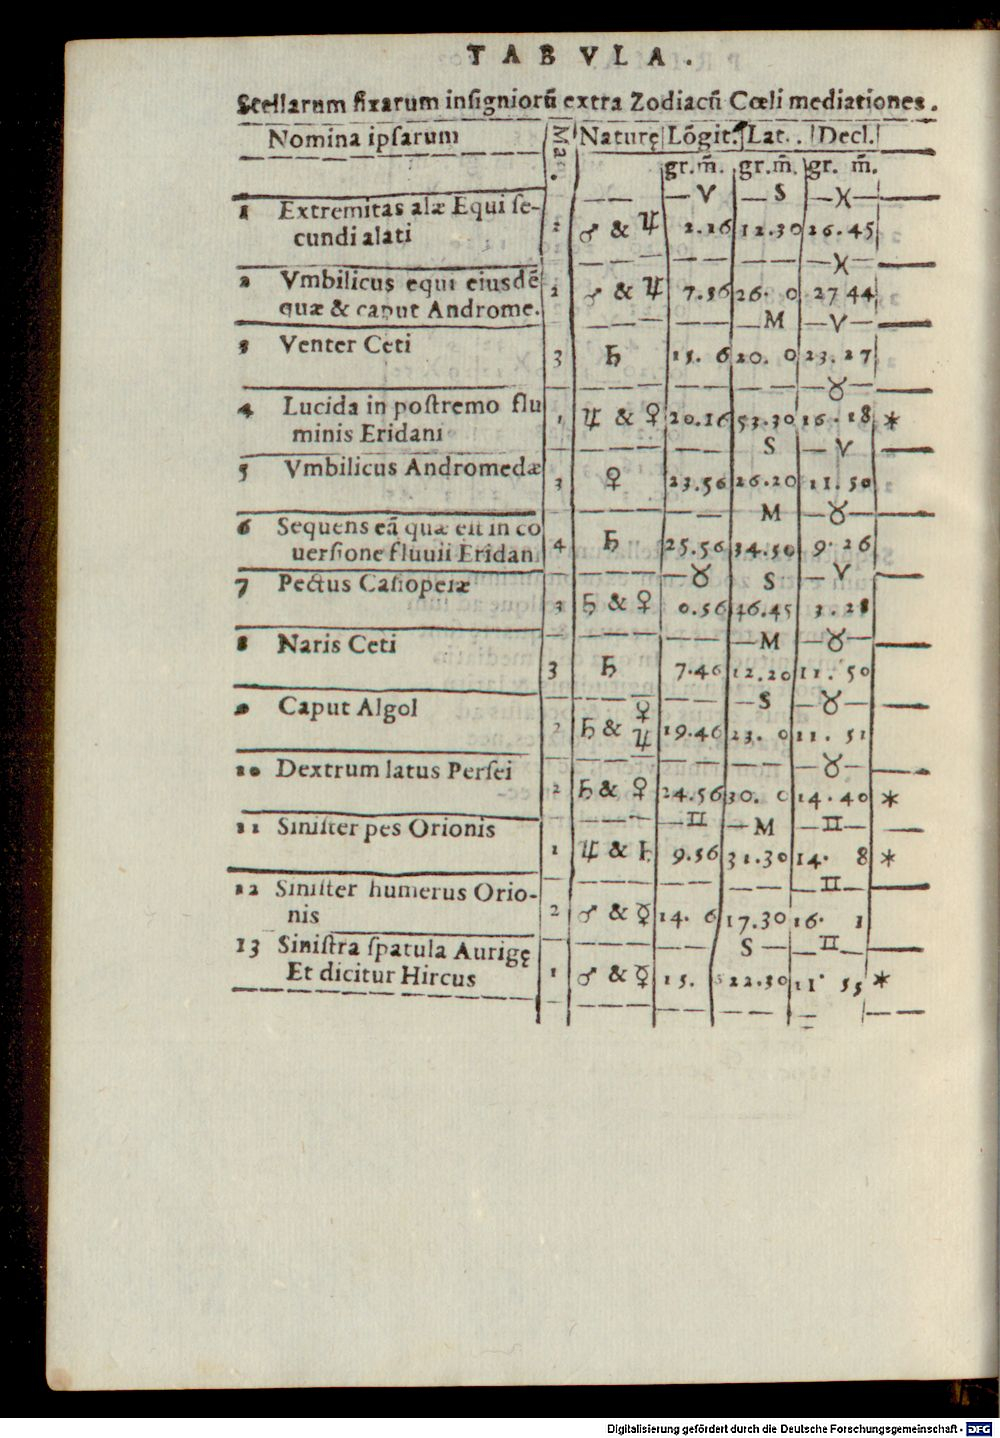 TABVLA.
Stellarum fixarum insigniorū extra Zodiacū Cœli mediationes.
Nomina ipsarum Mag. Naturę Lōgit. Lat. Decl.
gr. m̄. gr. m̄. gr. m̄.
♈ S ♓
1 Extremitas alæ Equi se-
cundi alati 2 ♂ & ♃ 2.16 12.30 26.45
♓
2 Vmbilicus equi eiusdē
quæ & caput Androme. 2 ♂ & ♃ 7.56 26. 0 27 44
M ♈
3 Venter Ceti 3 ♄ 15. 6 20. 0 23.27
♉
4 Lucida in postremo flu
minis Eridani 1 ♃ & ♀ 20.16 53.30 16.18 *
S ♈
5 Vmbilicus Andromedæ 3 ♀ 23.56 26.20 11.50
M ♉
6 Sequens eā quæ est in co
uersione fluuii Eridani 4 ♄ 25.56 34.50 9.26
♉ S ♈
7 Pectus Casioperæ 3 ♄ & ♀ 0.56 46.45 3.28
M ♉
8 Naris Ceti 3 ♄ 7.46 12.20 11.50
S ♉
9 Caput Algol 2 ♄ & ♀ ♃ 19.46 23. 0 11.51
♉
10 Dextrum latus Persei 2 ♄ & ♀ 24.56 30. 0 14.40 *
♊ M ♊
11 Sinister pes Orionis 1 ♃ & ♄ 9.56 31.30 14. 8 *
♊
12 Sinister humerus Orio-
nis 2 ♂ & ☿ 14. 6 17.30 16. 1
S ♊
13 Sinistra spatula Aurigę
Et dicitur Hircus 1 ♂ & ☿ 15. 22.30 11.55 *
Digitalisierung gefördert durch die Deutsche Forschungsgemeinschaft - DFG